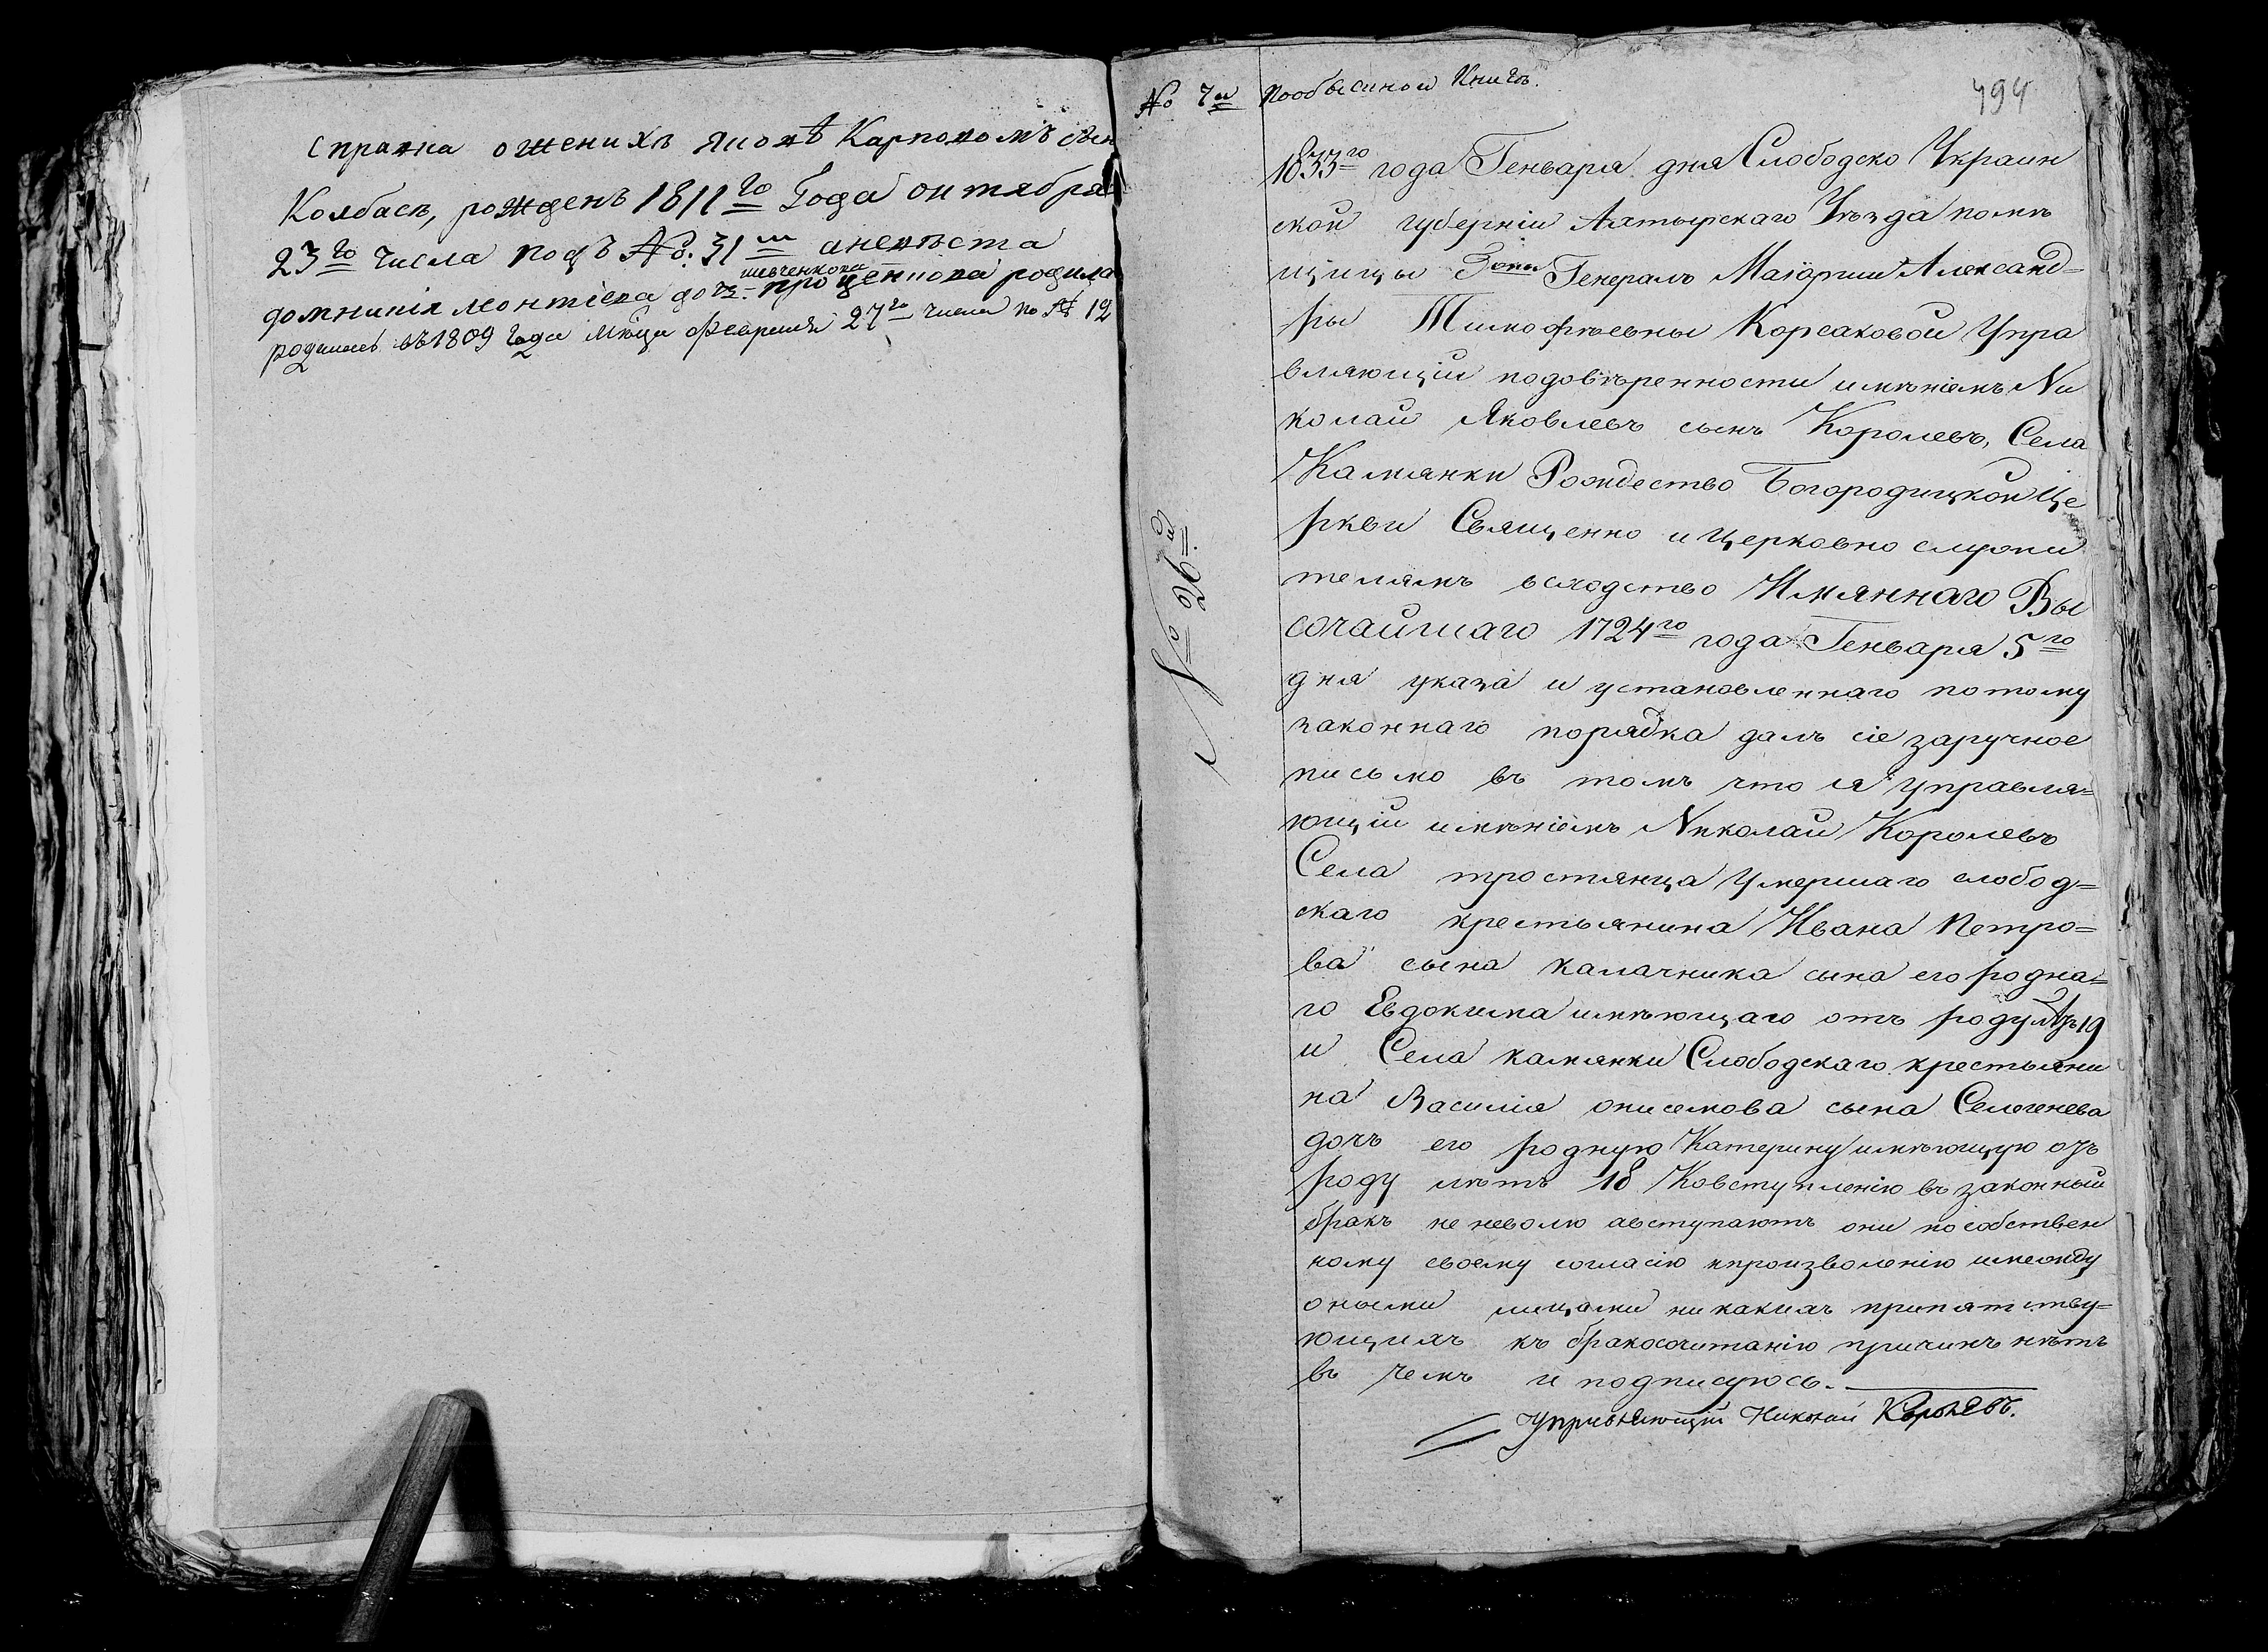 справка о женихѣ яковѣ Карповомъ сын
Колбасѣ, рожденъ 1811го Года октября
23го числа подъ №: 31м а невѣста
шевченкова
домникія леонтіева дочь проценкова родила
родилась въ 1809 года мѣца февраля 27го числа по № 12
№ 7й
пообыскной Книгѣ.
494
№ 26й
1833го года Генваря дня Слободско Украин
ской губерніи Ахтырскаго Уѣзда помѣ
щицы Генералъ Маіорши Александ=
ры Тимофѣевны Корсаковой Упра
вляющій подовѣренности имѣніемъ Ни
колай Яковлевъ сынъ Королевъ, Села
Камянки Рождество Богородицкой Це
ркви Священно и церковно служи
телямъ всходство Имяннаго Вы
сочайшаго 1724го года Генваря 5го
дня указа и установленнаго потому
законнаго порядка далъ сіе заручное
письмо въ томъ что я управля=
ющій имѣніемъ Николай Королевъ
Села тростянца Умершаго слобод=
скаго крестьянина Ивана Петро=
ва сына калачника сына его родна=
го Евдокима имѣющаго отъ роду лѣтъ 19
и Села камянки Слободскаго крестьяни
на Василія онисимова сына Селегенева
дочь его родную Катерину имѣющую отъ
роду лѣтъ 18 Ковступленію въ законный
бракъ не неволю авступаютъ они пособствен
ному своему согласію ипроизволенію имежду
оными лицами никакихъ припятству=
ющихъ къ бракосочитанію причинъ нѣтъ
въ чемъ и подписуюсь.
Управляющій Николай Королевъ.